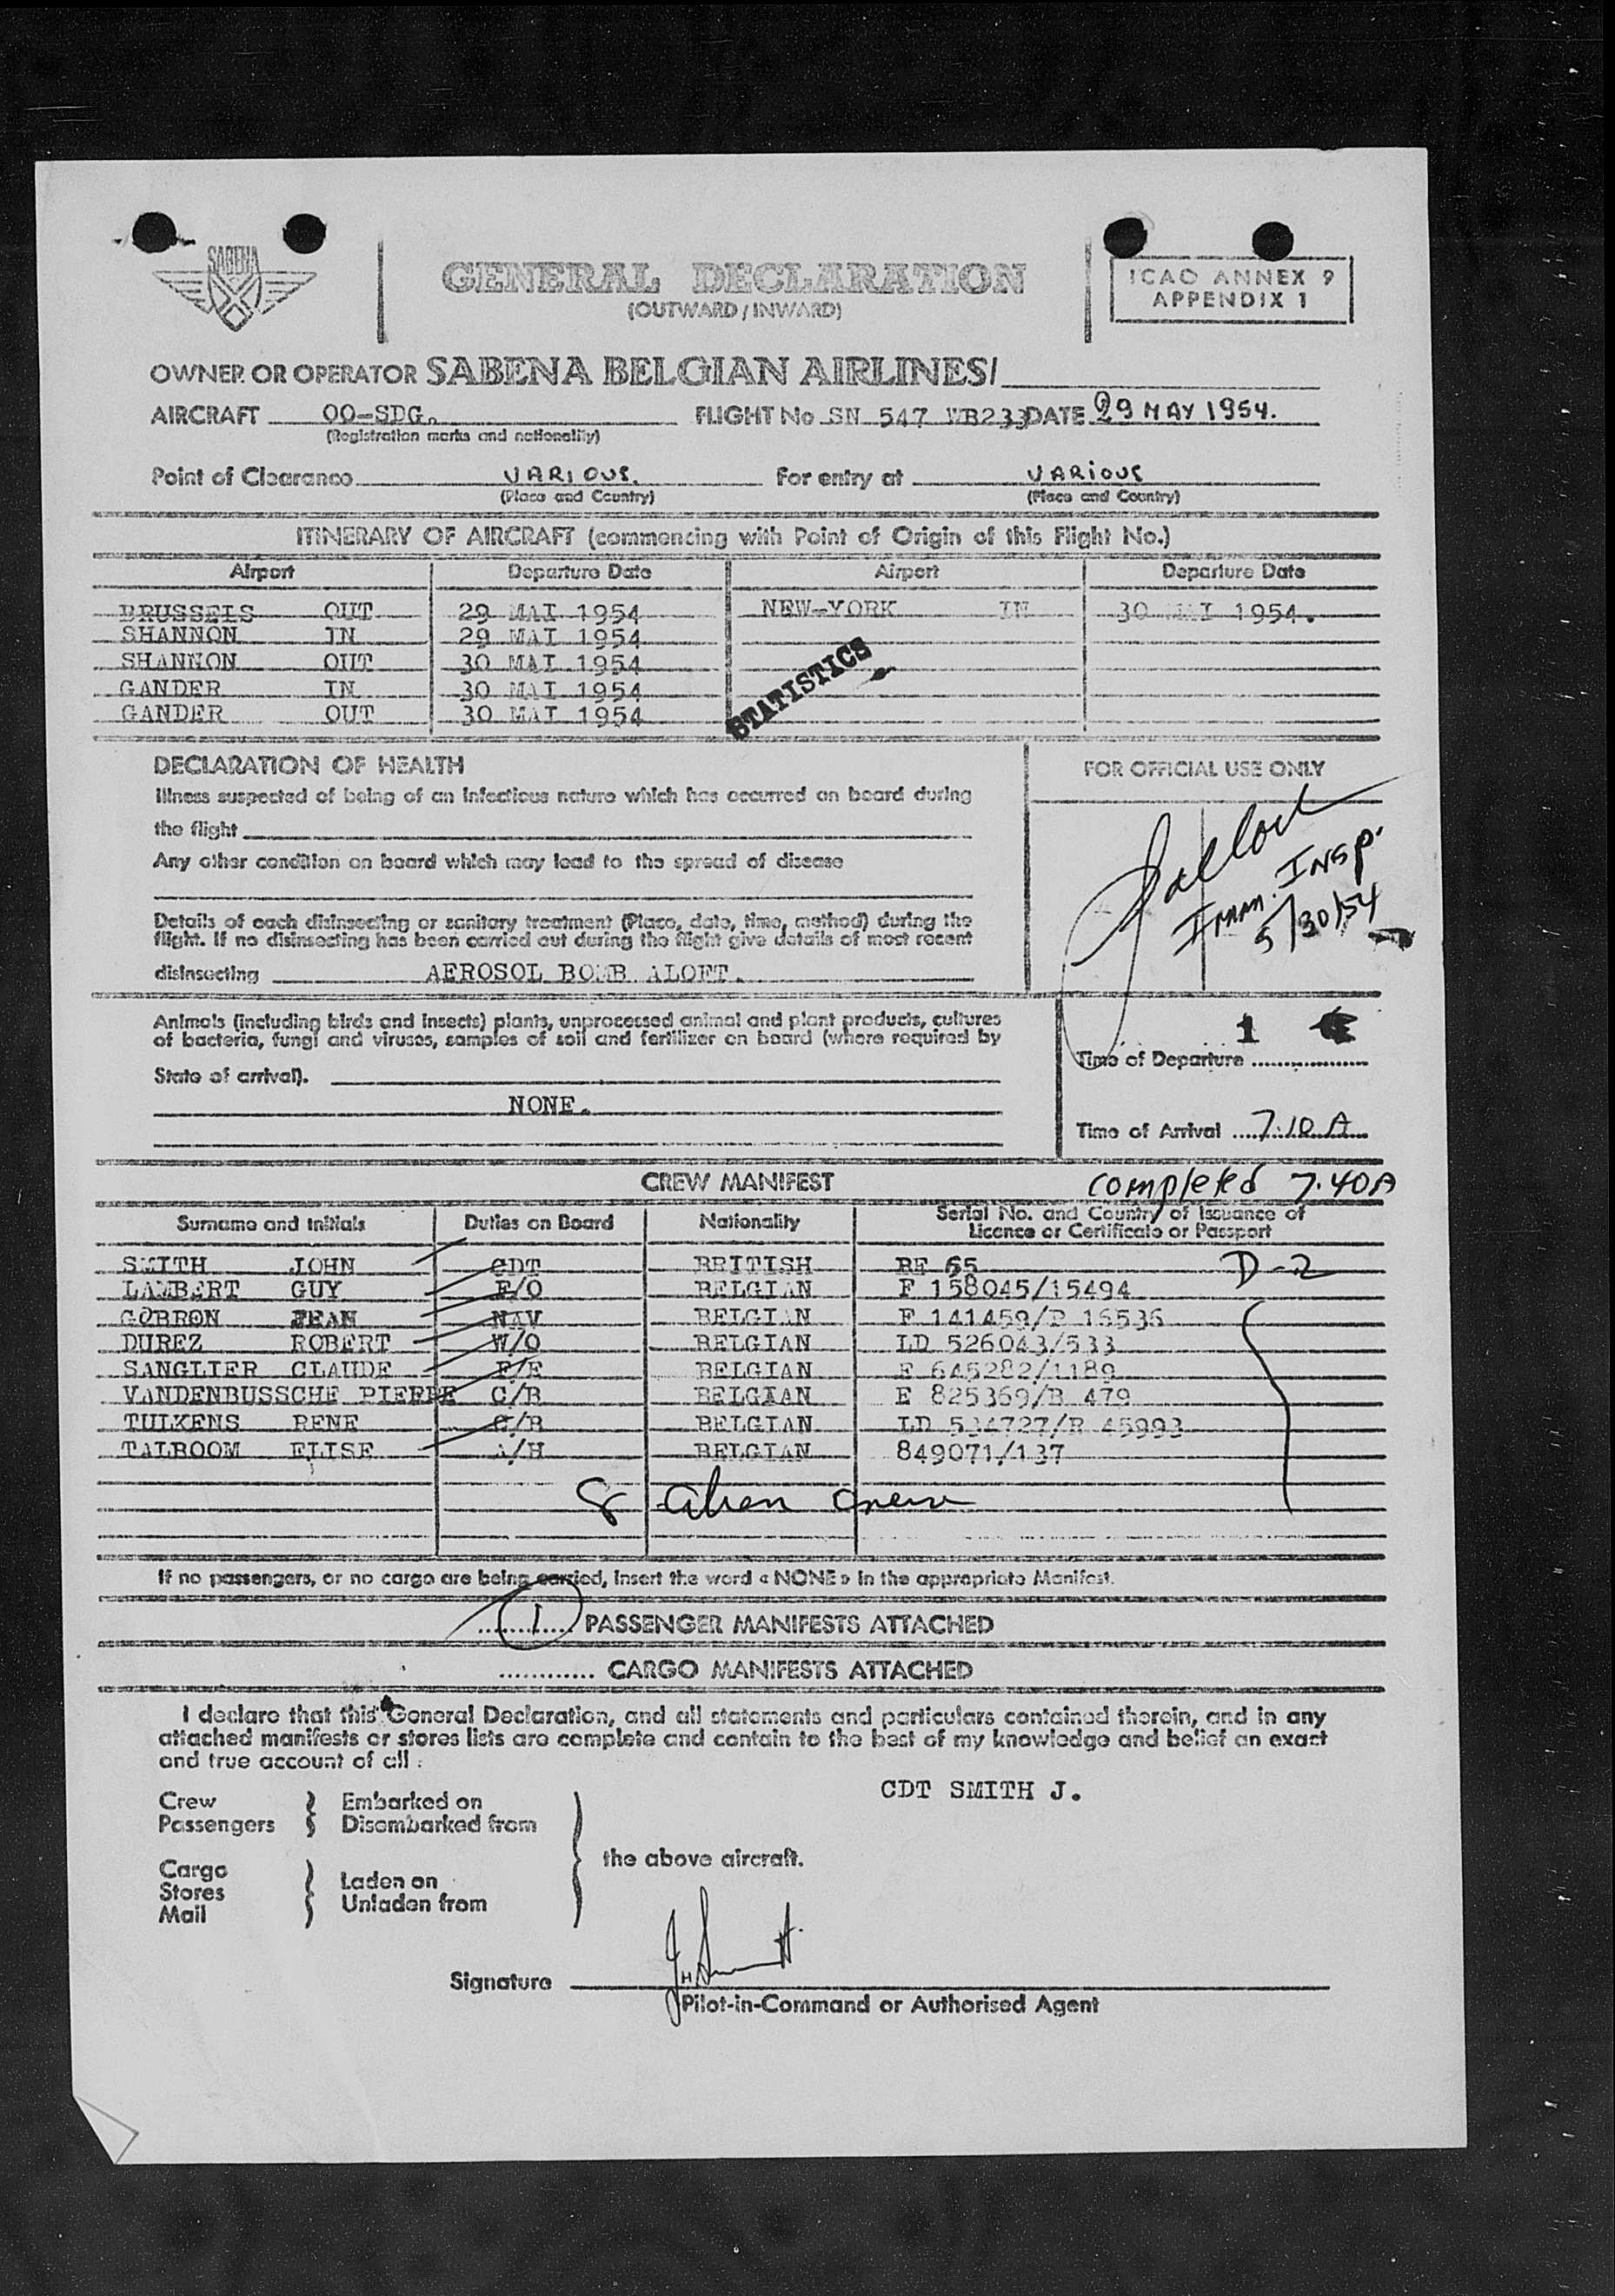 SABENA
GENERAL DECLARATION
(OUTWARD / INWARD)
ICAO ANNEX 9
APPENDIX 1
OWNER OR OPERATOR SABENA BELGIAN AIRLINES/
AIRCRAFT OO-SDG. FLIGHT No SN 547 WB233 DATE 29 MAY 1954.
(Registration marks and nationality)
Point of Clearance VARIOUS. For entry at VARIOUS
(Place and Country) (Place and Country)
ITINERARY OF AIRCRAFT (commencing with Point of Origin of this Flight No.)
Airport Departure Date Airport Departure Date
BRUSSELS OUT 29 MAI 1954 NEW-YORK IN 30 MAI 1954.
SHANNON IN 29 MAI 1954
SHANNON OUT 30 MAI 1954
GANDER IN 30 MAI 1954
GANDER OUT 30 MAI 1954
STATISTICS
DECLARATION OF HEALTH
Illness suspected of being of an infectious nature which has occurred on board during
the flight
Any other condition on board which may lead to the spread of disease
Details of each disinsecting or sanitary treatment (Place, date, time, method) during the
flight. If no disinsecting has been carried out during the flight give details of most recent
disinsecting AEROSOL BOMB ALOFT.
FOR OFFICIAL USE ONLY
Imm. Insp.
5/30/54
Animals (including birds and insects) plants, unprocessed animal and plant products, cultures
of bacteria, fungi and viruses, samples of soil and fertilizer on board (where required by
State of arrival).
NONE.
1
Time of Departure
Time of Arrival 7:10 A
CREW MANIFEST
completed 7.40A
Surname and Initials Duties on Board Nationality Serial No. and Country of Issuance of
Licence or Certificate or Passport
SMITH JOHN CDT BRITISH BE 65 D-2
LAMBERT GUY F/O BELGIAN F 158045/15494
GOBRON JEAN NAV BELGIAN F 141459/P 16536
DUREZ ROBERT W/O BELGIAN LD 526043/533
SANGLIER CLAUDE F/E BELGIAN E 645282/1189
VANDENBUSSCHE PIERRE C/R BELGIAN E 825369/B 479
TULKENS RENE C/R BELGIAN LD 534727/R 45993
TALBOOM ELISE A/H BELGIAN 849071/137
8 alien crew
If no passengers, or no cargo are being carried, insert the word « NONE » in the appropriate Manifest.
1 PASSENGER MANIFESTS ATTACHED
............ CARGO MANIFESTS ATTACHED
I declare that this General Declaration, and all statements and particulars contained therein, and in any
attached manifests or stores lists are complete and contain to the best of my knowledge and belief an exact
and true account of all :
CDT SMITH J.
Crew Embarked on
Passengers Disembarked from
the above aircraft.
Cargo Laden on
Stores Unladen from
Mail
Signature
Pilot-in-Command or Authorised Agent